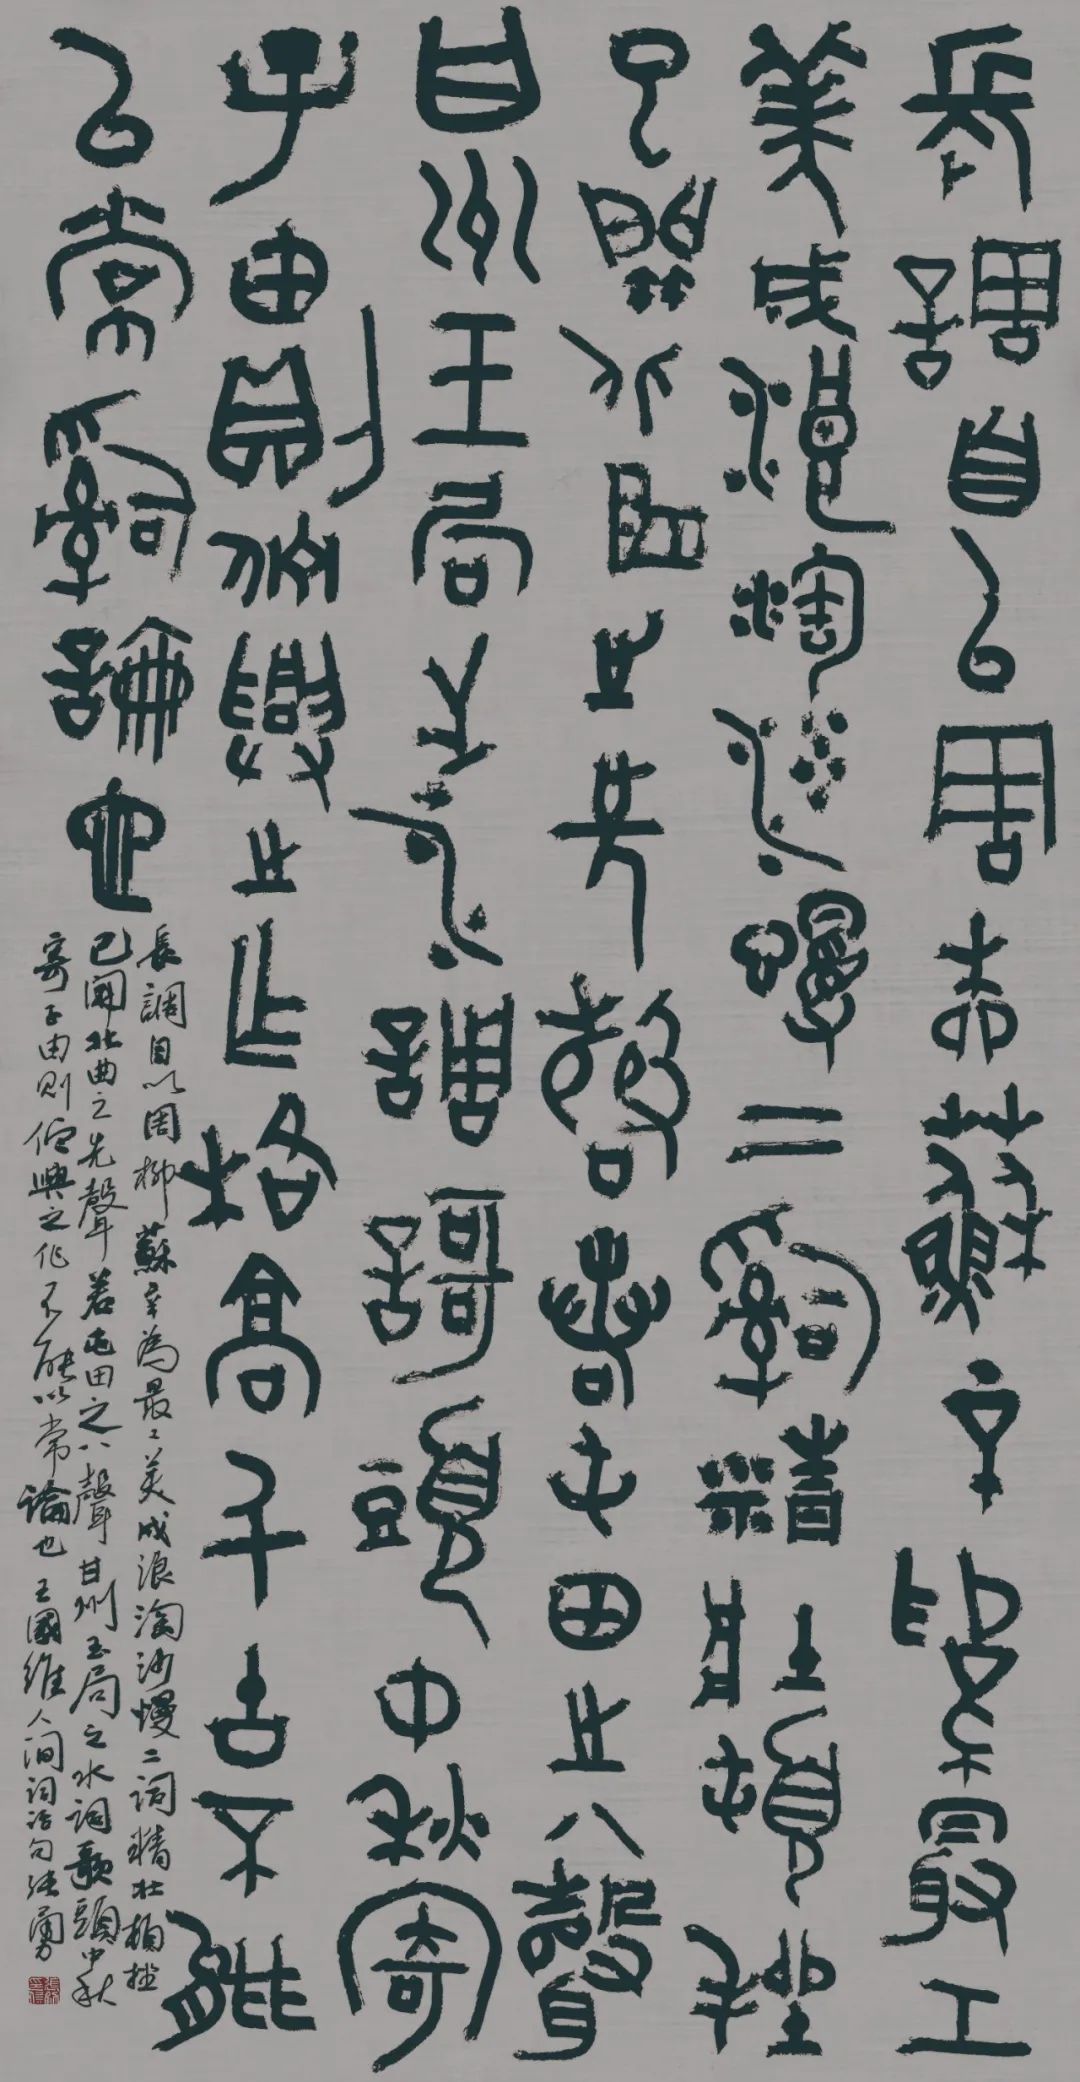 長調自以周柳蘇辛為最工
美成浪淘沙慢二詞精壯頓挫
已開北曲之先聲若屯田之八聲
甘州玉局之水調歌頭中秋寄
子由則佇興之作格高千古不能
以常詞論也
長調自以周柳蘇辛為最工美成浪淘沙慢二詞精壯頓挫
已開北曲之先聲若屯田之八聲甘州玉局之水調歌頭中秋
寄子由則佇興之作不能以常論也王國維人間詞話句張勇